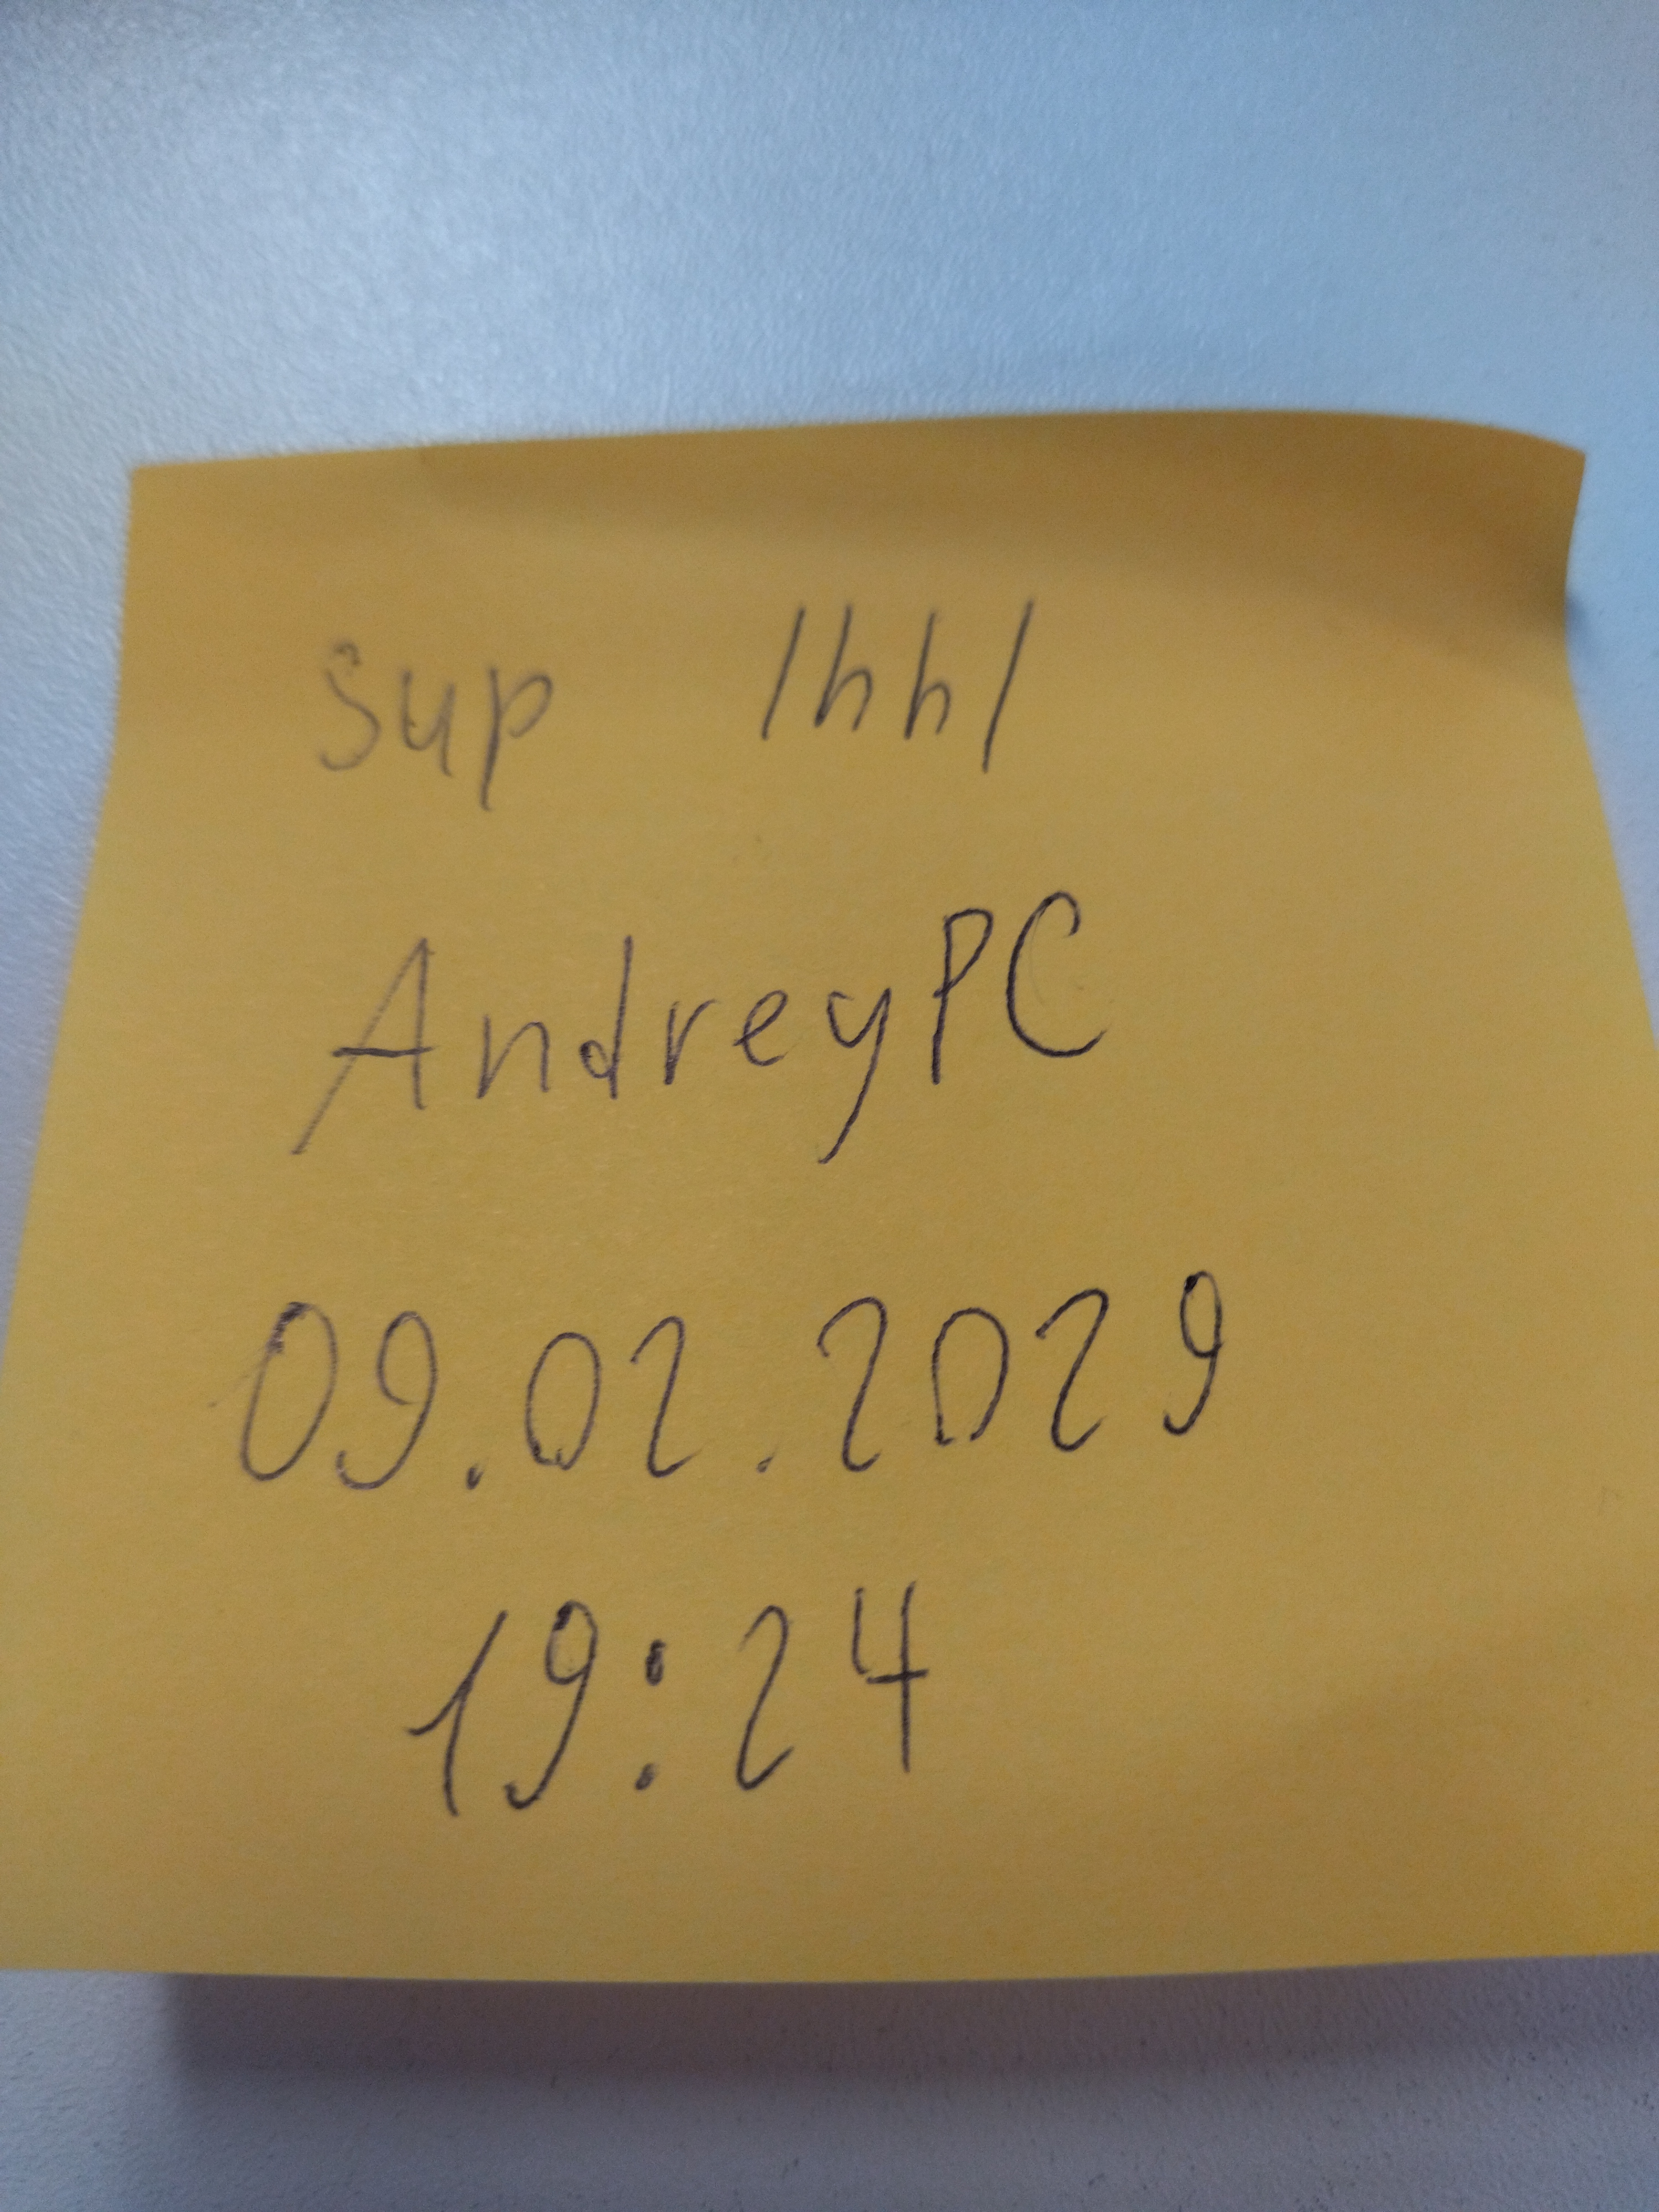 sup /hh/
AndreyPC
09.02.2029
19:24